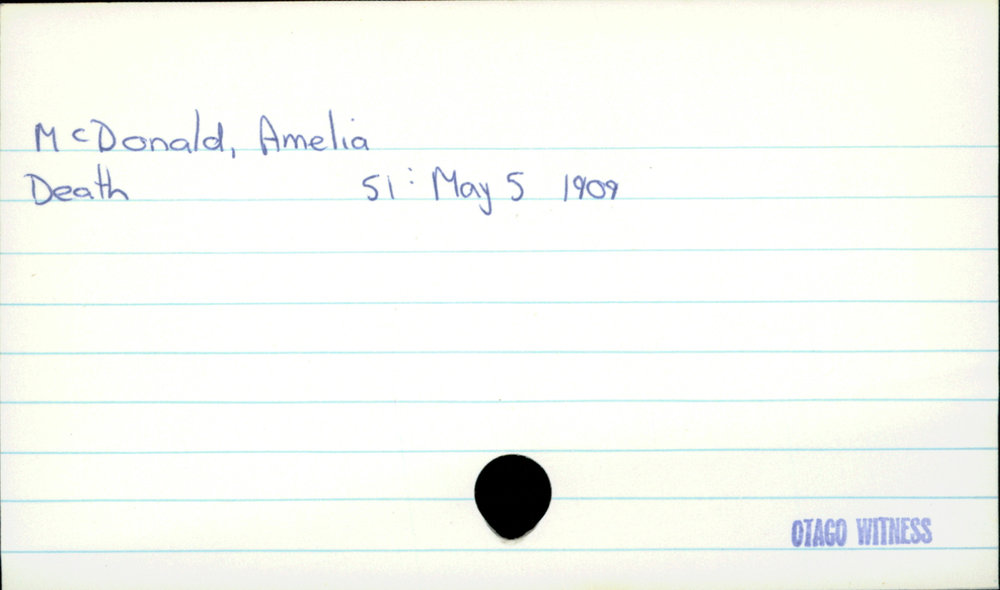 McDonald, Amelia
Death 51: May 5 1909
OTAGO WITNESS